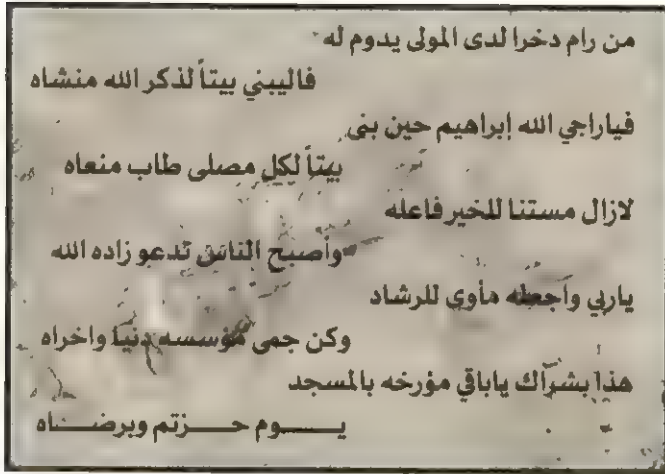 من رام دخرا لدى المولى يدوم له
فاليبني بيتاً لذكر الله منشاه
فياراجي الله إبراهيم حين بنى
بيتاً لكل مصلى طاب منعاه
لازال مستنا للخير فاعله
وأصبح الناس تدعو زاده الله
ياربي وأجعله مأوى للرشاد
وكن جمى مؤسسه دنيا واخراه
هذا بشراك ياباقي مؤرخه بالمسجد
يــــوم حـــزتم وبرضــــاه